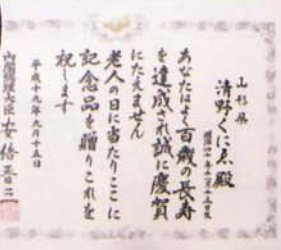 山形県
清野くにゑ殿
あなたはよく百歳の長寿
を達成され誠に慶賀
にたえません
老人の日に当たりここに
記念品を贈りこれを
祝します
平成十九年九月十五日
内閣総理大臣 安倍晋三